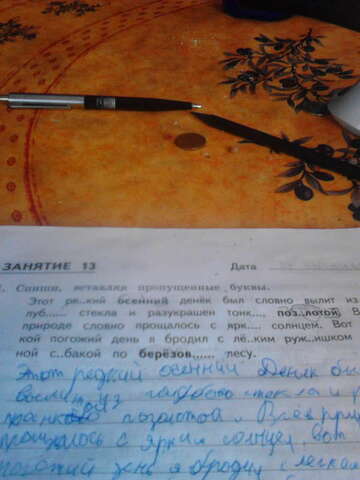 ЗАНЯТИЕ 13 Дата
Спиши, вставляя пропущенные буквы.
Этот ре..кий осенний денёк был словно вылит из
луб...... стекла и разукрашен тонк...., поз..лотой. В
природе словно прощалось с ярк.... солнцем. Вот
кой погожий день я бродил с лё..ким руж..ишком
ной с..бакой по берёзов...... лесу.
Этот редкий осенний Денек бы
стекла и
позолотой. Вся при
прощалось с ярким солнцем, вот
день я бродил с легким